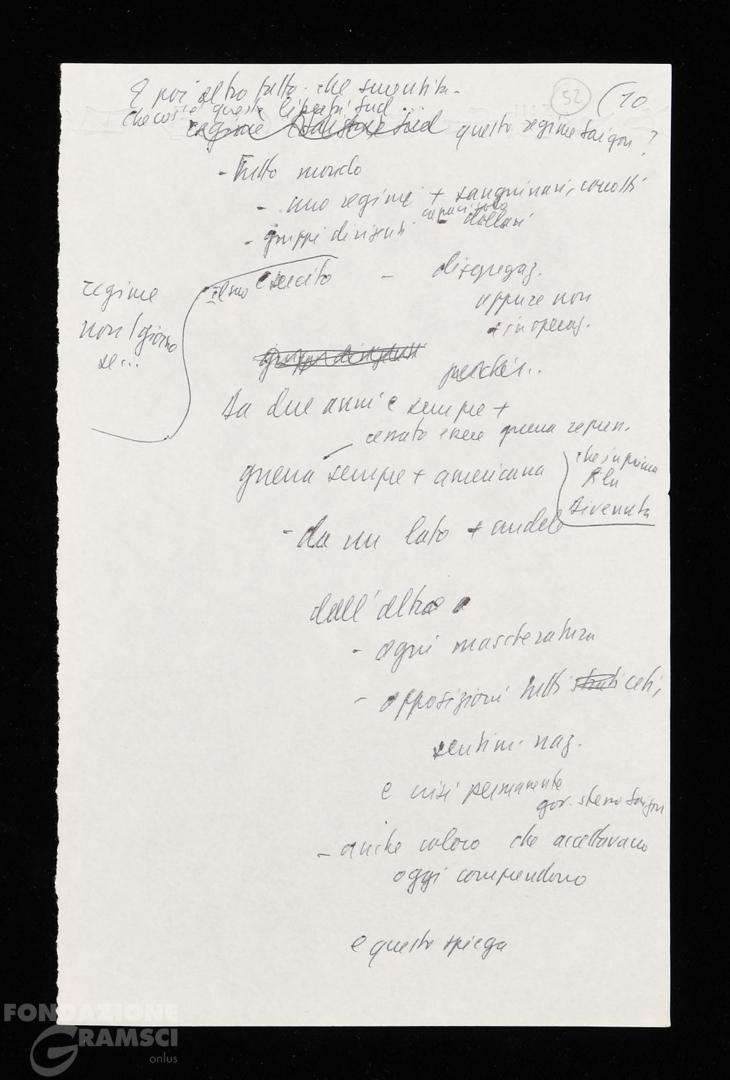 E poi altro fatto che smentita -
che cos'è questa libertà Sud ...
52
10
questo regime Saigon?
- Tutto mondo
- uno regime + sanguinari, corrotti
- gruppi dirigenti
capaci solo
dollari
regime
non 1 giorno
se...
esercito - disgregaz.
oppure non
+ in operaz.
gruppi dirigenti
perché...
Da due anni è sempre +
cessato essere guerra repress.
guerra sempre + americana
che in prima
fila
divenuta
- da un lato + crudele
dall'altro
- ogni mascheratura
- opposizioni tutti strati ceti,
sentim. naz.
e crisi permanente
gov. stesso Saigon
- anche coloro che accettavano
oggi comprendono
e questo spiega
FONDAZIONE
GRAMSCI
onlus